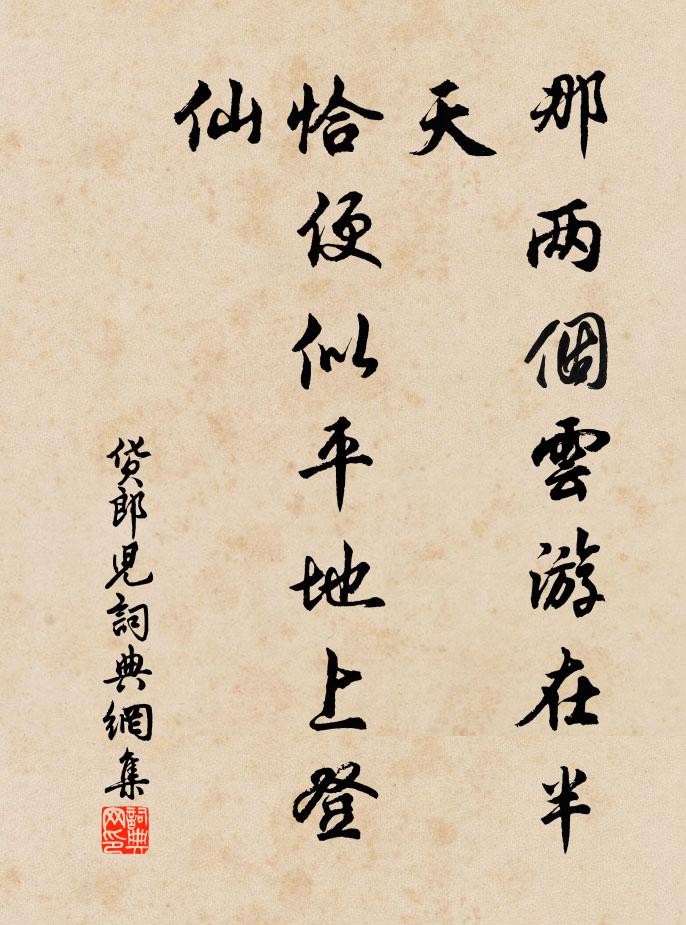 那两個雲游在半
天
恰便似平地上登
仙
货郎兒詞典網集
詞典网印